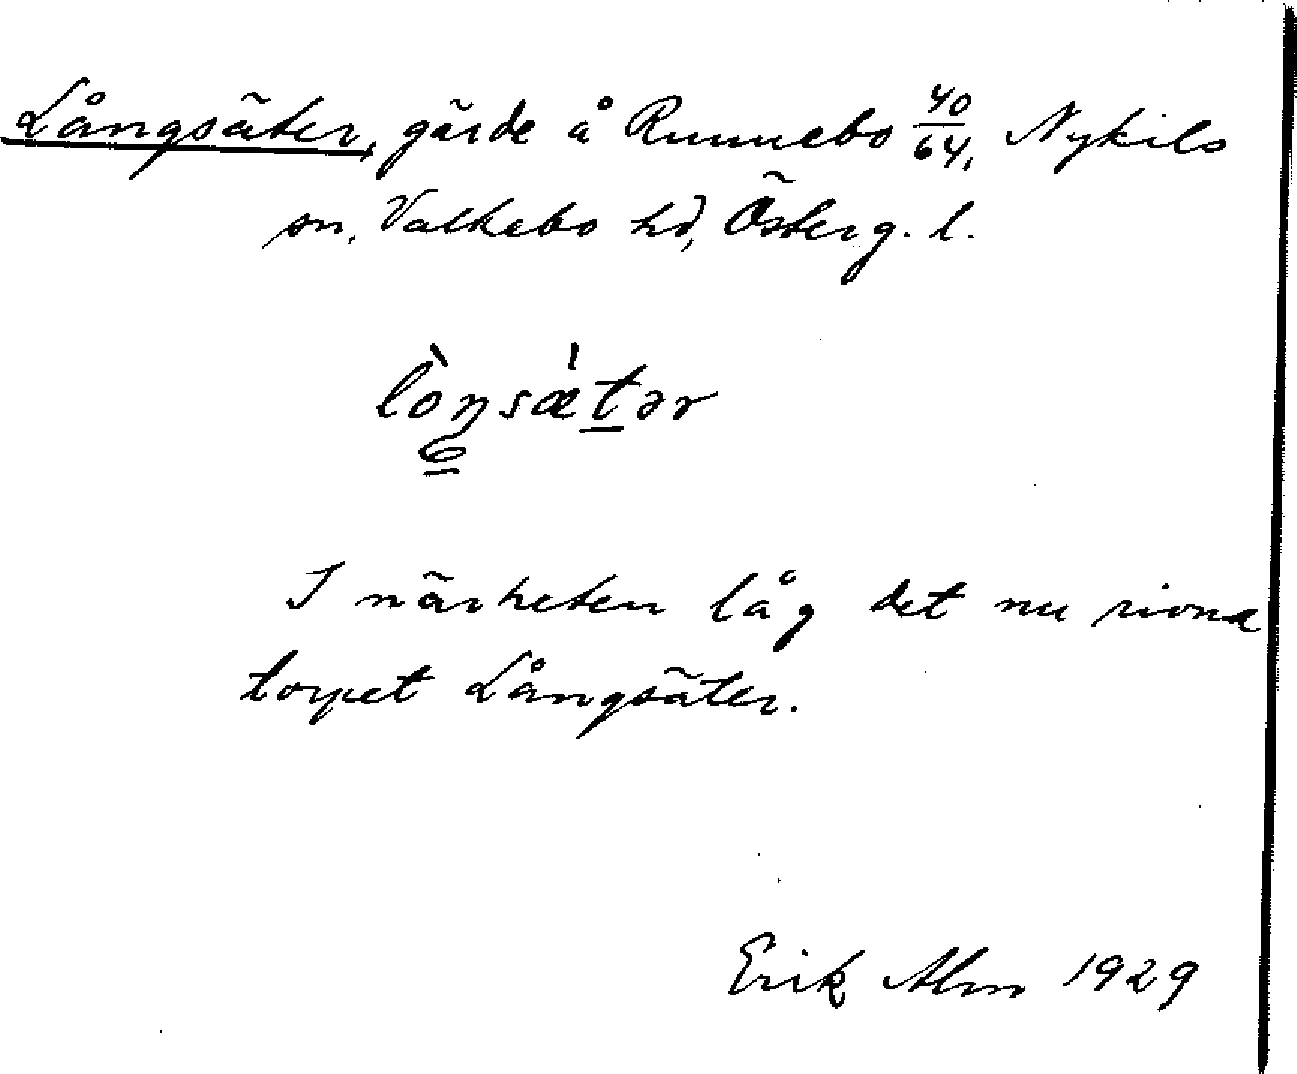 Långsäter, gärde å Runnebo 40/64, Nykils
sn, Valkebo hd, Österg. l.
lòŋsæ̀tər
I närheten låg det nu rivna
torpet Långsäter.
Erik Alm 1929